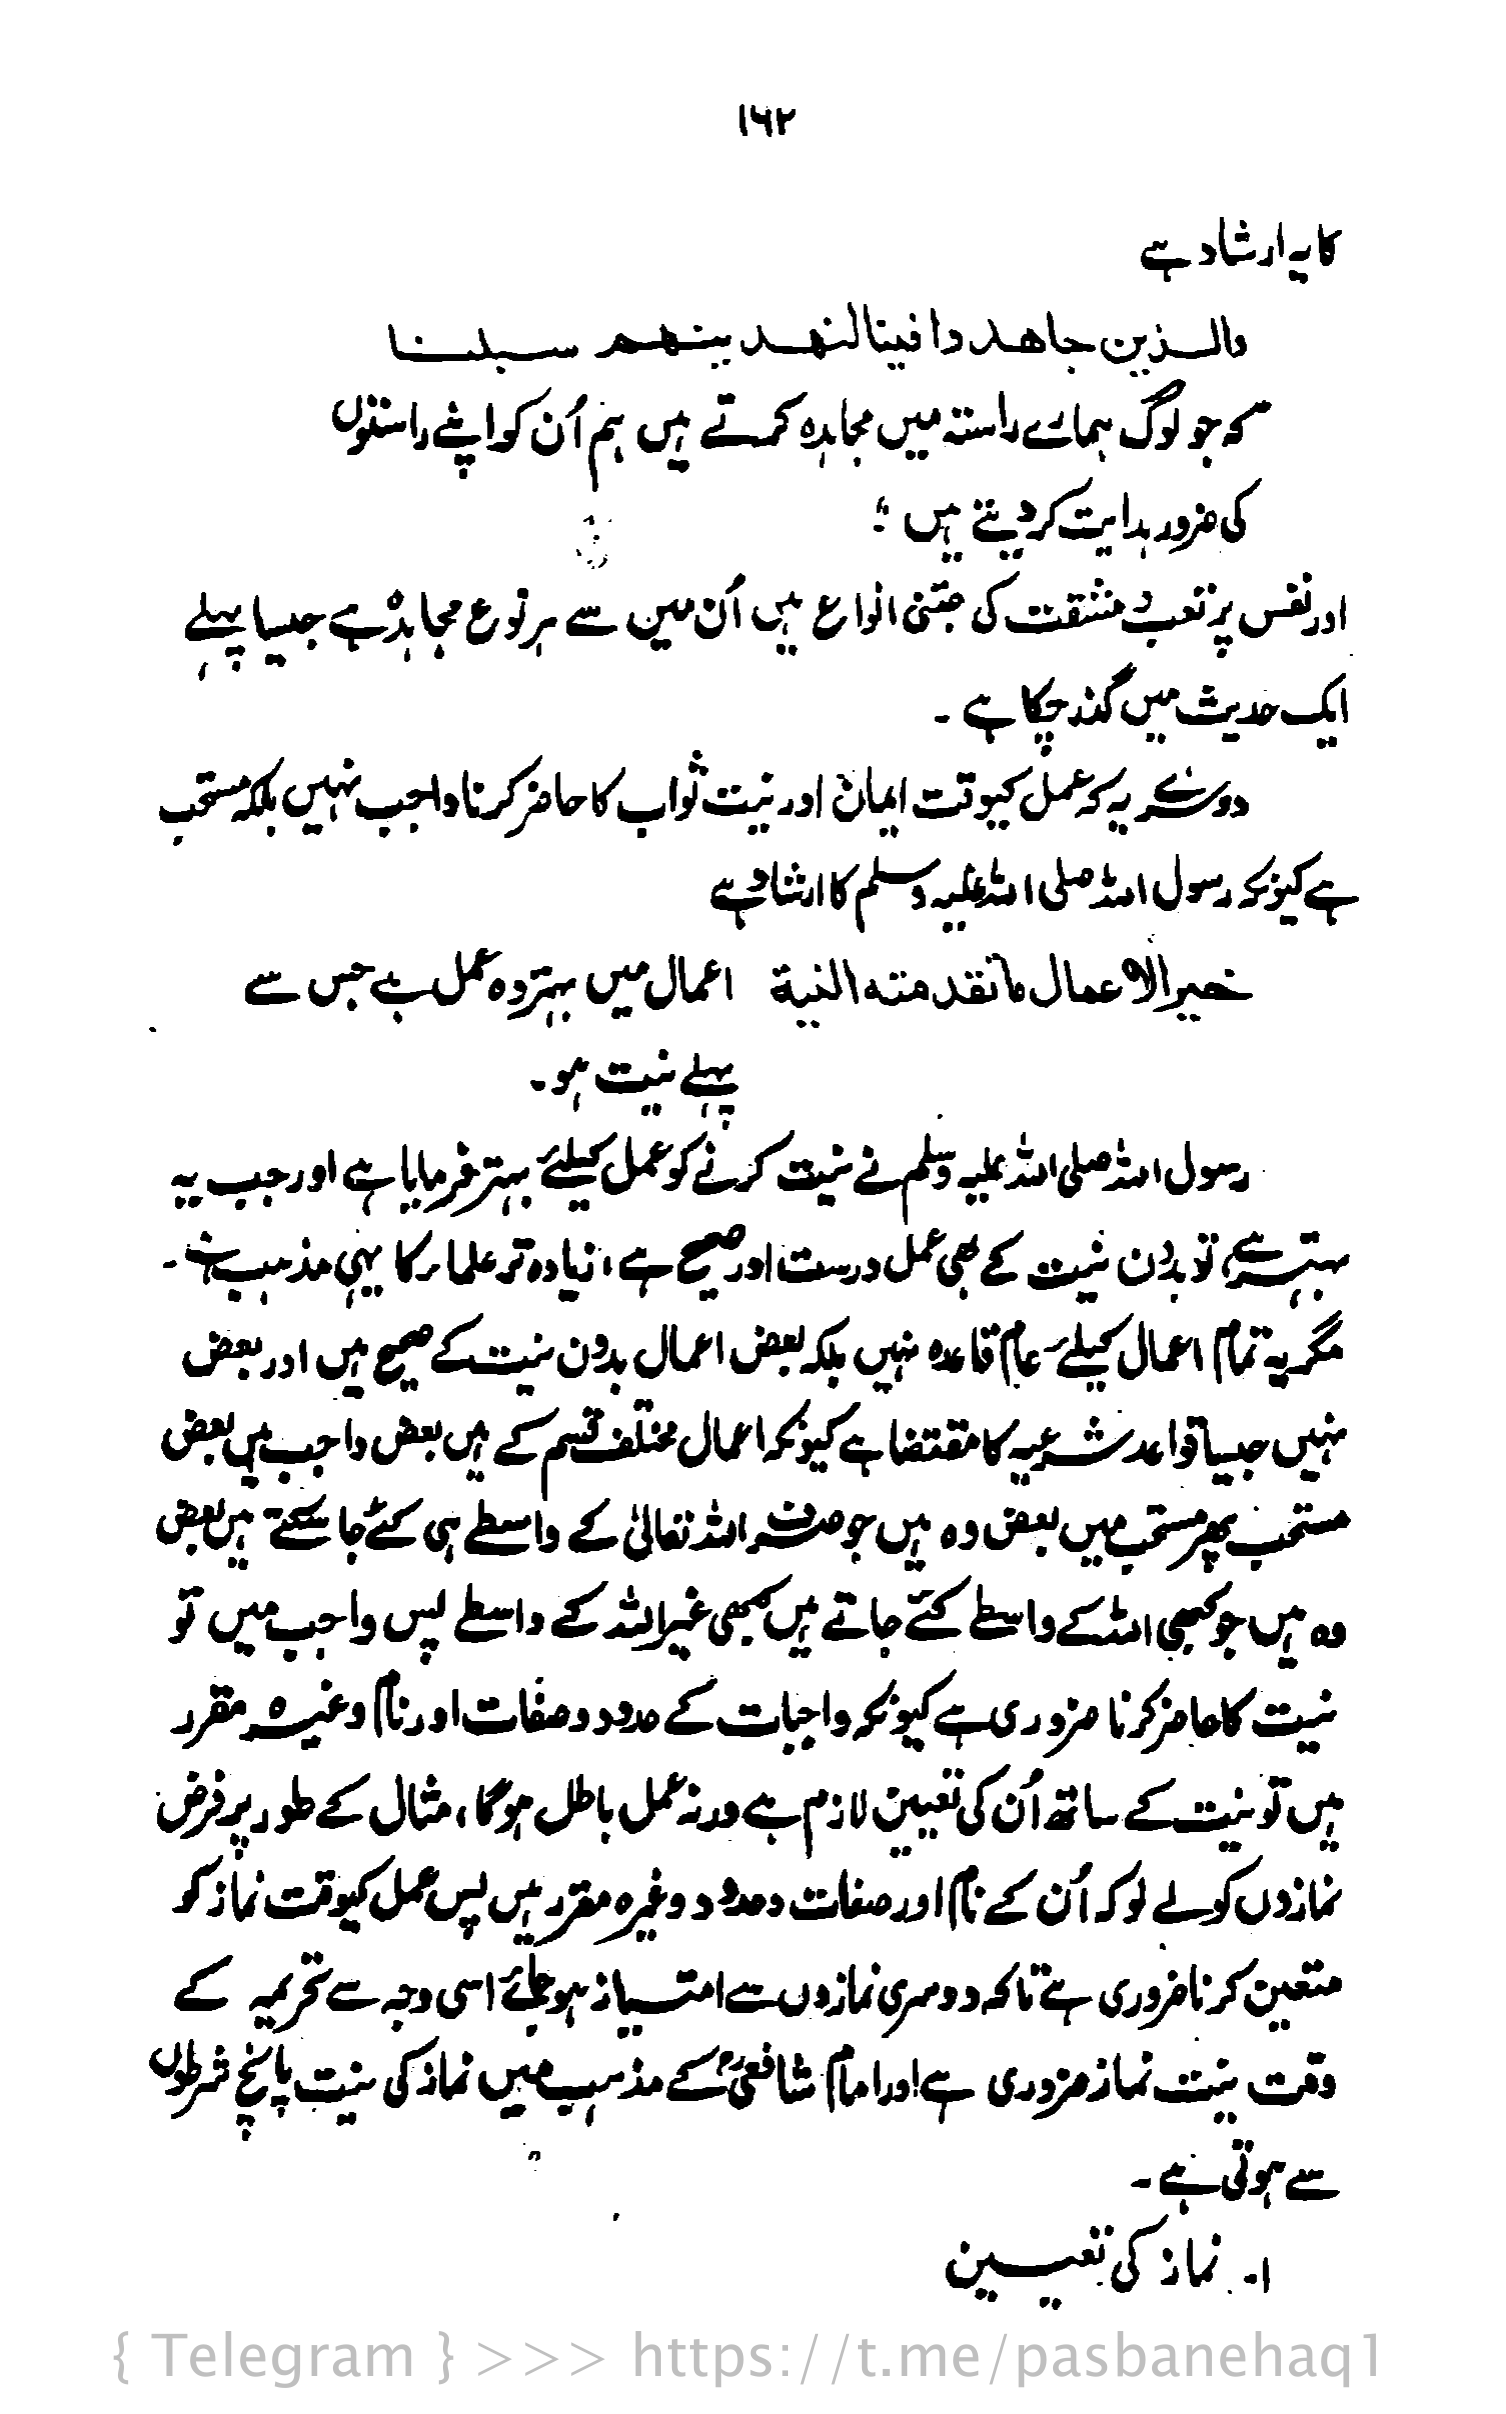 ۱۶۲
کا یہ ارشاد ہے
والذین جاھدوا فینا لنھدینھم سبلنا
کہ جو لوگ ہمارے راستہ میں مجاہدہ کرتے ہیں ہم اُن کو اپنے راستوں
کی ضرور ہدایت کر دیتے ہیں ؛
اور نفس پر تعب و مشقت کی جتنی انواع ہیں اُن میں سے ہر نوع مجاہدہ ہے جیسا پہلے
ایک حدیث میں گذر چکا ہے ۔
دوسرے یہ کہ عمل کیوقت ایمان اور نیت ثواب کا حاضر کرنا واجب نہیں بلکہ مستحب
ہے کیونکہ رسول اللہ صلی اللہ علیہ وسلم کا ارشاد ہے
خیر الاعمال ما تقدمتہ النیة اعمال میں بہتر وہ عمل ہے جس سے
پہلے نیت ہو ۔
رسول اللہ صلی اللہ علیہ وسلم نے نیت کرنے کو عمل کیلئے بہتر فرمایا ہے اور جب یہ
بہتر ہے تو بدون نیت کے بھی عمل درست اور صحیح ہے ، زیادہ تر علماء کا یہی مذہب ہے ۔
مگر یہ تمام اعمال کیلئے عام قاعدہ نہیں بلکہ بعض اعمال بدون نیت کے صحیح ہیں اور بعض
نہیں جیسا قواعد شرعیہ کا مقتضا ہے کیونکہ اعمال مختلف قسم کے ہیں بعض واجب ہیں بعض
مستحب پھر مستحب میں بعض وہ ہیں جو صرف اللہ تعالیٰ کے واسطے ہی کئے جا سکتے ہیں بعض
وہ ہیں جو کبھی اللہ کے واسطے کئے جاتے ہیں کبھی غیر اللہ کے واسطے پس واجب میں تو
نیت کا حاضر کرنا ضروری ہے کیونکہ واجبات کے حدود و صفات اور نام وغیرہ مقرر
ہیں تو نیت کے ساتھ اُن کی تعیین لازم ہے ورنہ عمل باطل ہوگا ، مثال کے طور پر فرض
نمازوں کو لے لو کہ اُن کے نام اور صفات و حدود وغیرہ مقرر ہیں پس عمل کیوقت نماز کو
متعین کرنا ضروری ہے تاکہ دوسری نمازوں سے امتیاز ہو جائے اسی وجہ سے تحریمہ کے
وقت نیت نماز ضروری ہے اور امام شافعیؒ کے مذہب میں نماز کی نیت پانچ شرطوں
سے ہوتی ہے ۔
۱۔ نماز کی تعیین
{ Telegram } >>> https://t.me/pasbanehaq1